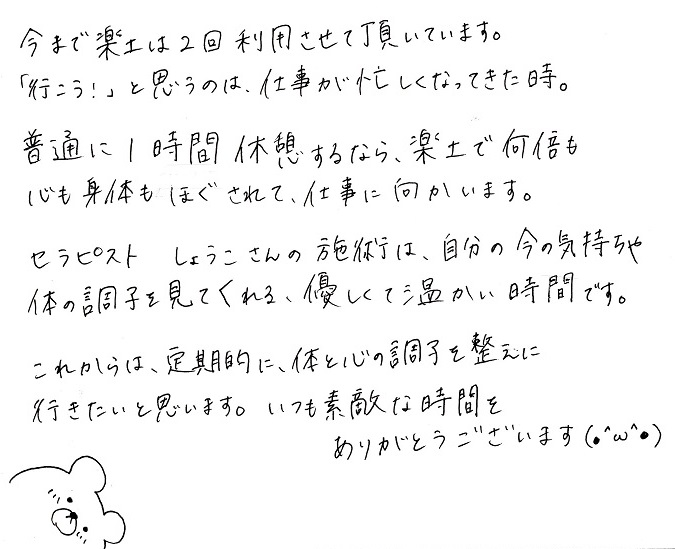 今まで楽土は2回利用させて頂いています。
「行こう!」と思うのは、仕事が忙しくなってきた時。
普通に1時間休憩するなら、楽土で何倍も
心も身体もほぐされて、仕事に向かいます。
セラピスト しょうこさんの施術は、自分の今の気持ちや
体の調子を見てくれる、優しくて温かい時間です。
これからは、定期的に、体と心の調子を整えに
行きたいと思います。いつも素敵な時間を
ありがとうございます(•^ω^•)